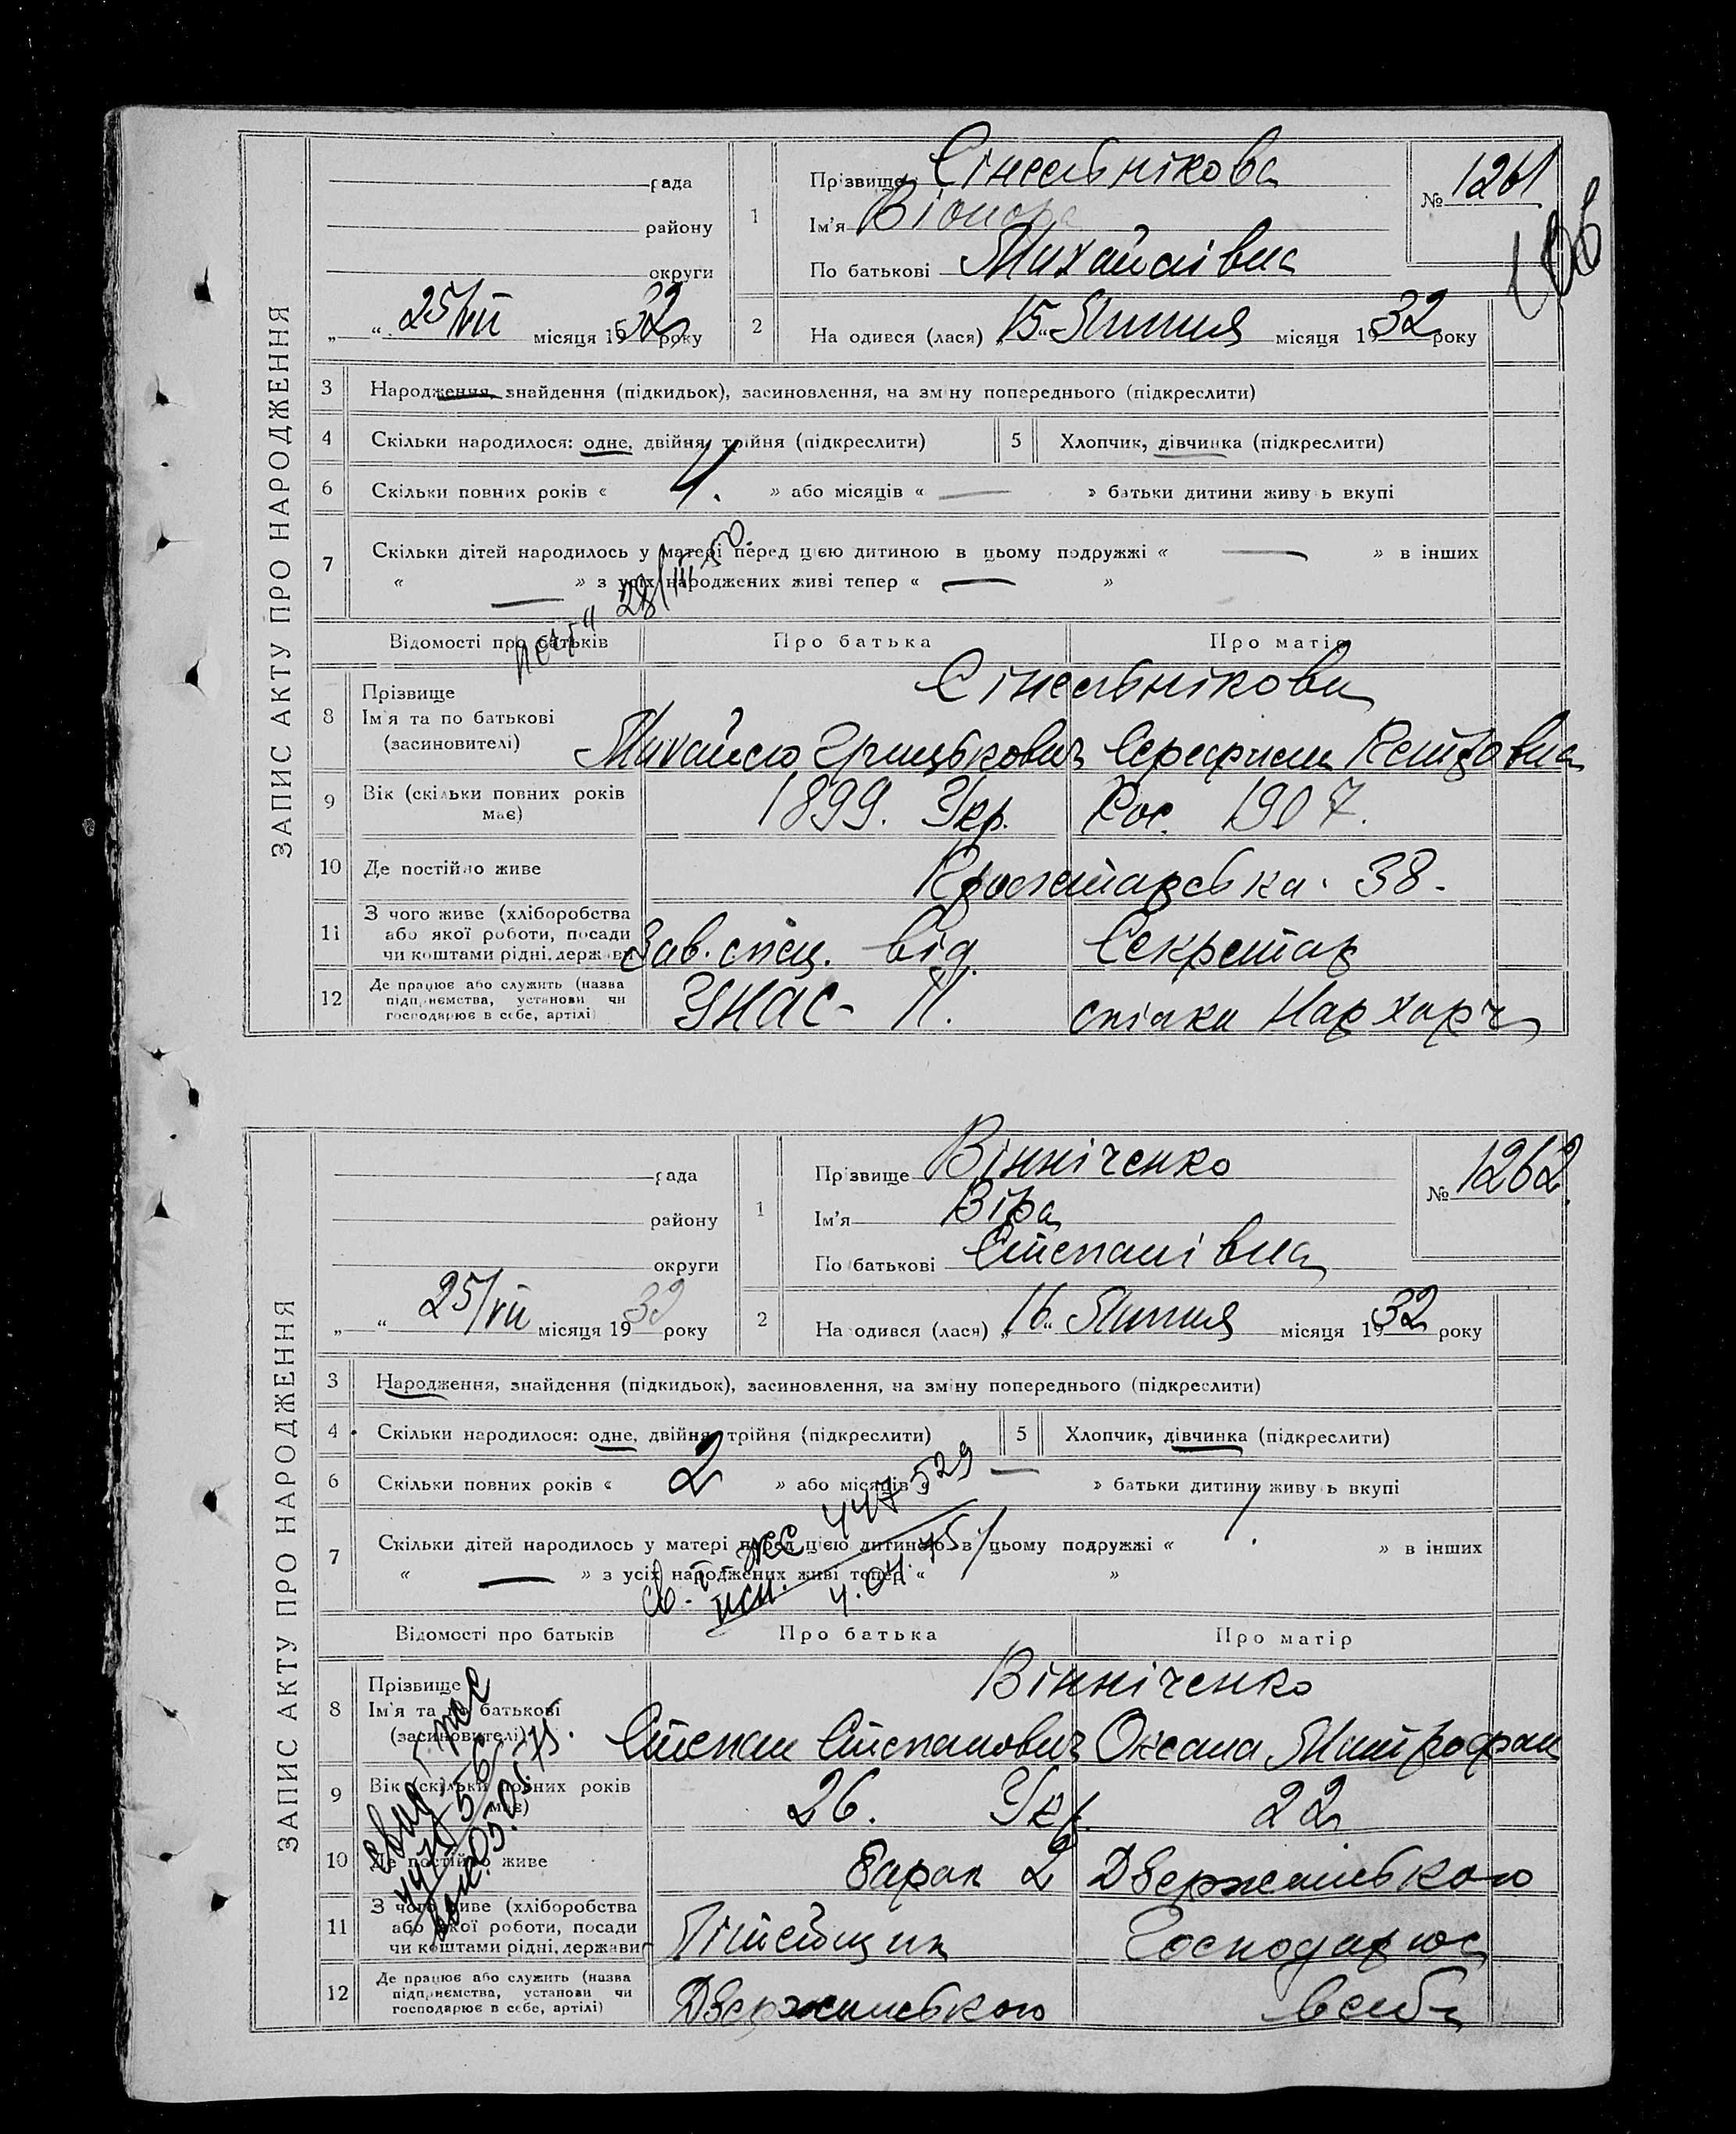 ЗАПИС АКТУ ПРО НАРОДЖЕННЯ
рада
району
округи
„ “ 25/VII місяця 1932 року
1 Прізвище Сінельнікова
Ім'я Віонора
По батькові Михайлівна
№ 1261
106
2 На одився (лася) „15“ Липня місяця 1932 року
3 Народження, знайдення (підкидьок), засиновлення, на зм ну попереднього (підкреслити)
4 Скільки народилося: одне, двійня, трійня (підкреслити)
5 Хлопчик, дівчинка (підкреслити)
6 Скільки повних років « 4. » або місяців « — » батьки дитини живу ь вкупі
7 Скільки дітей народилось у матері перед цією дитиною в цьому подружжі « — » в інших
« — » з усіх народжених живі тепер « — »
28/III 50
Відомості про батьків Про батька Про матір
8 Прізвище
Ім'я та по батькові
(засиновителі)
Сінельнікови
Михайло Грицькович Серафима
9 Вік (скільки повних років має)
1899. Укр. Рос. 1907.
10 Де постійно живе
38.
11 З чого живе (хліборобства або якої роботи, посади чи коштами рідні, держави
Зав. спец. від. Секретар
12 Де працює або служить (назва підприємства, установи чи господарює в себе, артілі)
спілки Нархарч
ЗАПИС АКТУ ПРО НАРОДЖЕННЯ
рада
району
округи
„ “ 25/VII місяця 1932 року
1 Пр звище Вінніченко
Ім'я Віра
По батькові Степанівна
№ 1262.
2 На одився (лася) „16“ Липня місяця 1932 року
3 Народження, знайдення (підкидьок), засиновлення, на зм ну попереднього (підкреслити)
4 Скільки народилося: одне, двійня, трійня (підкреслити)
5 Хлопчик, дівчинка (підкреслити)
6 Скільки повних років « 2 » або місяців « — » батьки дитини живу ь вкупі
7 Скільки дітей народилось у матері перед цією дитиною в цьому подружжі « 1. » в інших
« — » з усіх народжених живі тепер « 1 »
Відомості про батьків Про батька Про матір
8 Прізвище
Ім'я та по батькові
(засиновителі)
Вінніченко
Степан Степанович Оксана Митрофан
9 Вік (скільки повних років має)
26. Укр. 22
10 Де постійно живе
Барак 2 Дзержинського
11 З чого живе (хліборобства або якої роботи, посади чи коштами рідні, держави
Літейщик Господарює
12 Де працює або служить (назва підприємства, установи чи господарює в себе, артілі)
Дзержинського